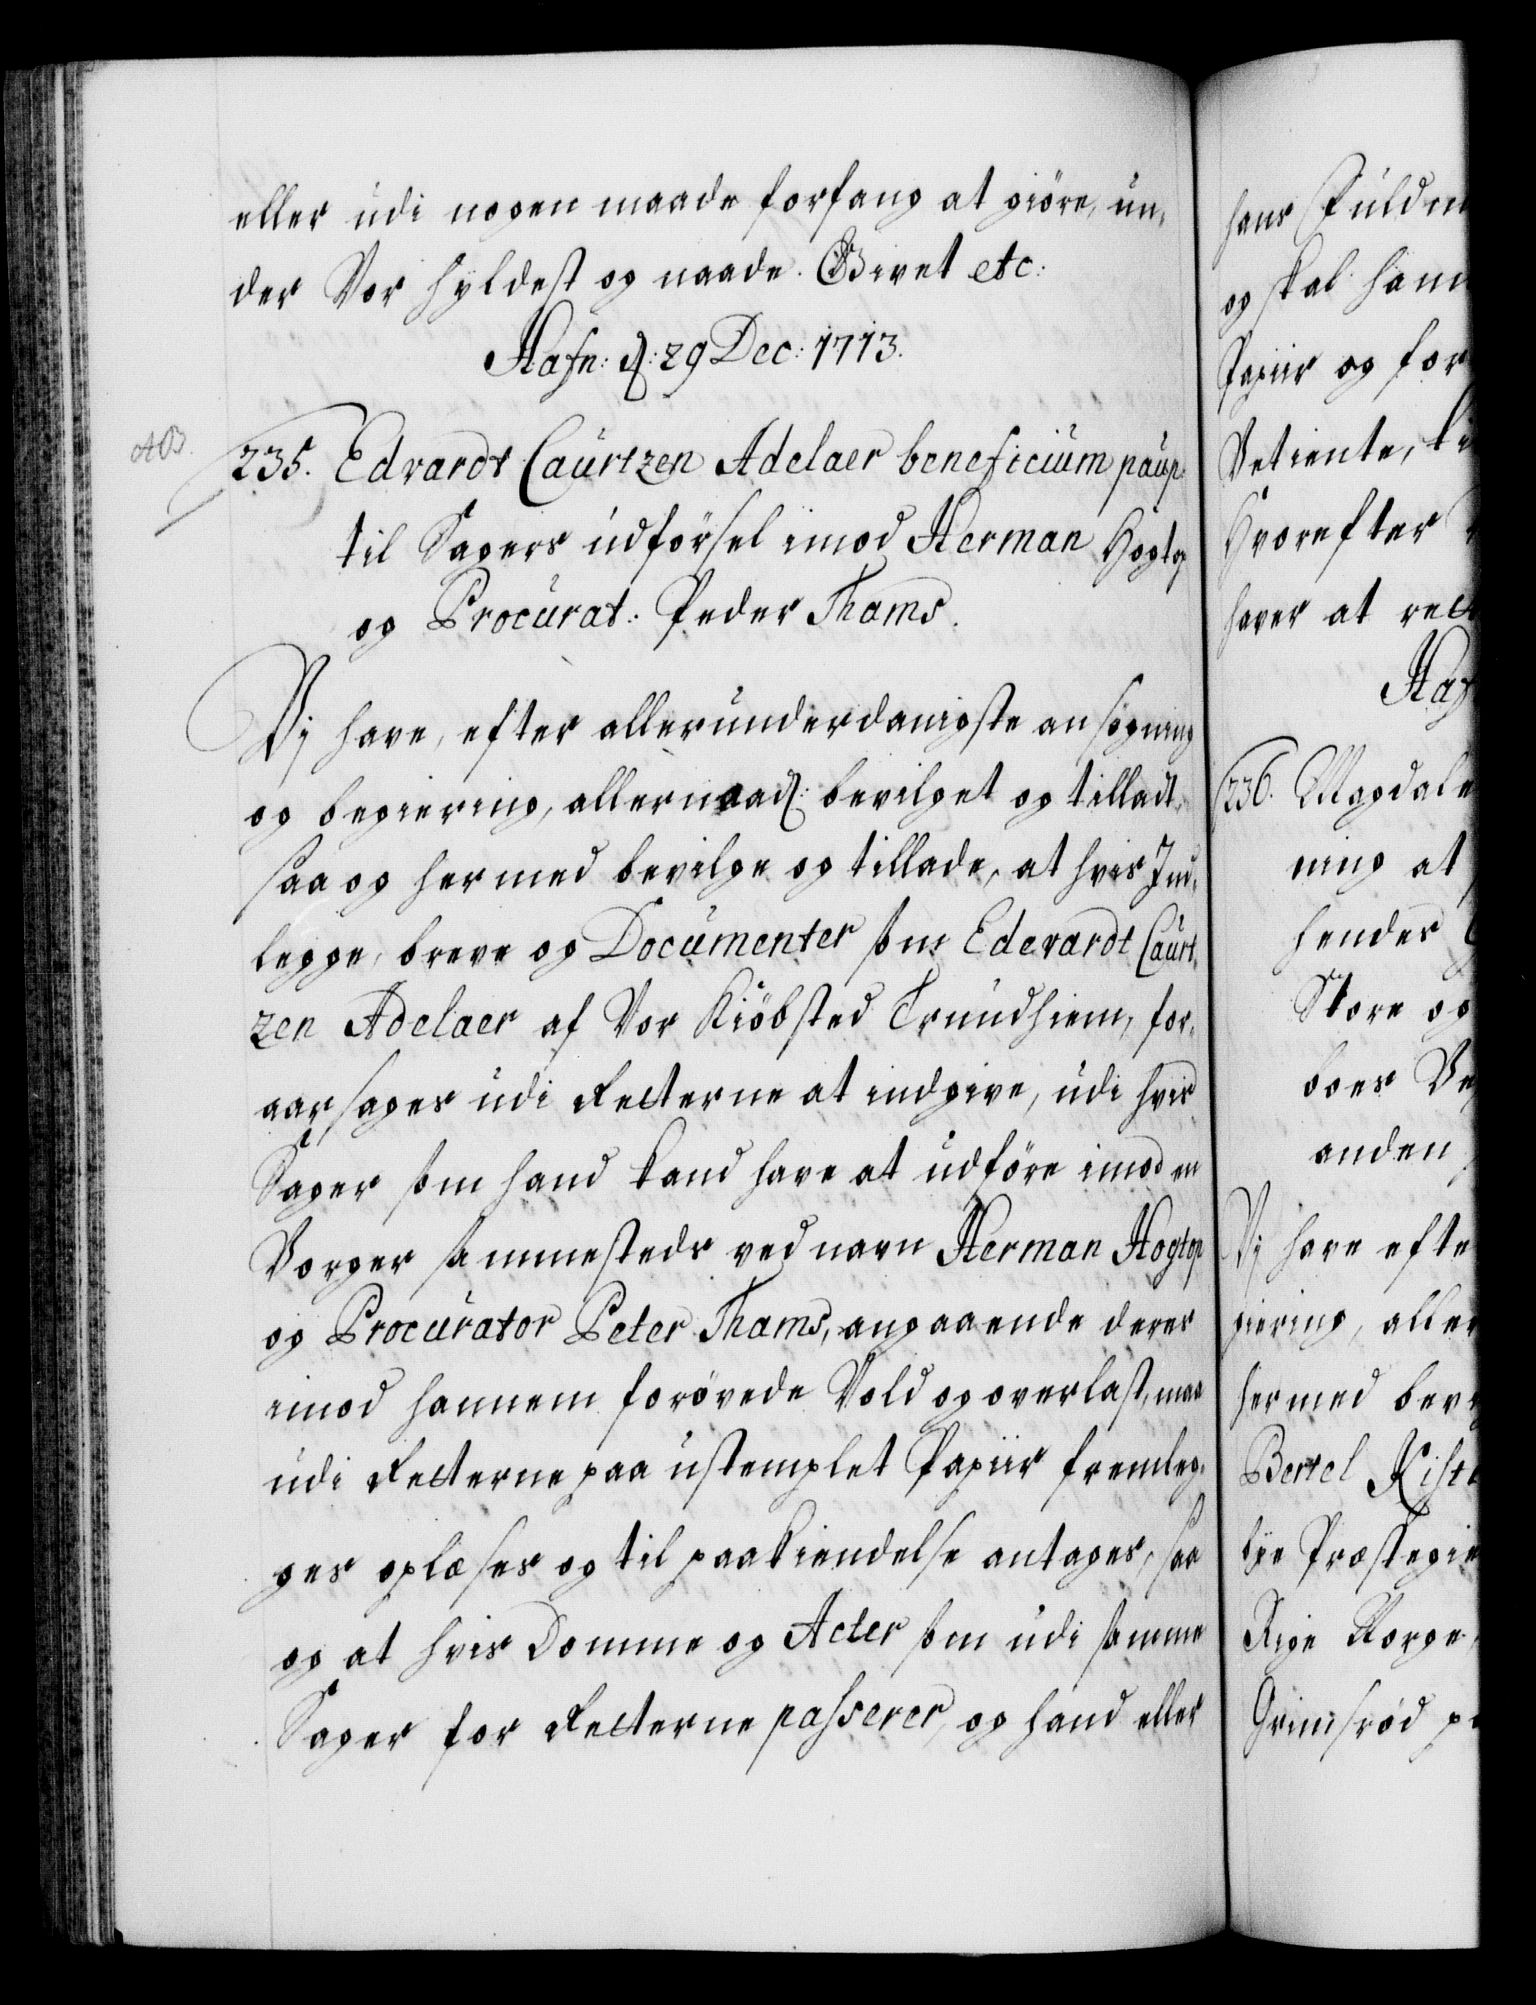 eller udi nogen maade forfang at giöre, un,
der Vor hyldest og naade. Givet etc:
Hafn: d: 29 Dec: 1713.
235. Edvardt Caurtzen Adelaer beneficium paup:
til Sagers udförsel imod Herman Hogtop
og Procurat: Peder Thams.
Vj have, efter allerunderdanigste ansögning
og begiering, allernaad: bevilget og tilladt,
saa og hermed bevilge og tillade, at hvis Ind,
legge, breve og Documenter som Edevardt Caurt,
zen Adelaer af Vor Kiöbsted Trundhiem, for,
aarsages udi Retterne at indgive, udi hvis
Sager som hand kand have at udföre imod en
Borger sammesteds ved navn Herman Hogtop
og Procurator Peter Thams, angaaende deres
imod hannem forövede Vold og overlast, maa
udi Retterne paa ustemplet Papiir fremleg,
ges oplæses og til paakiendelse antages, saa
og at hvis Domme og Acter som udi samme
Sager for Retterne passerer, og hand eller
hans Fuldm
og skal ham
Papiir og for
Petiente,
Hvorefter
haver at ret
Haf
236. Magdale
ning at
hendes
Store og
boes
anden
Vj have efte
giering, aller
hermed bev
Bertel Rist
bye Præstegie
Rige Norge,
Grimsröd p